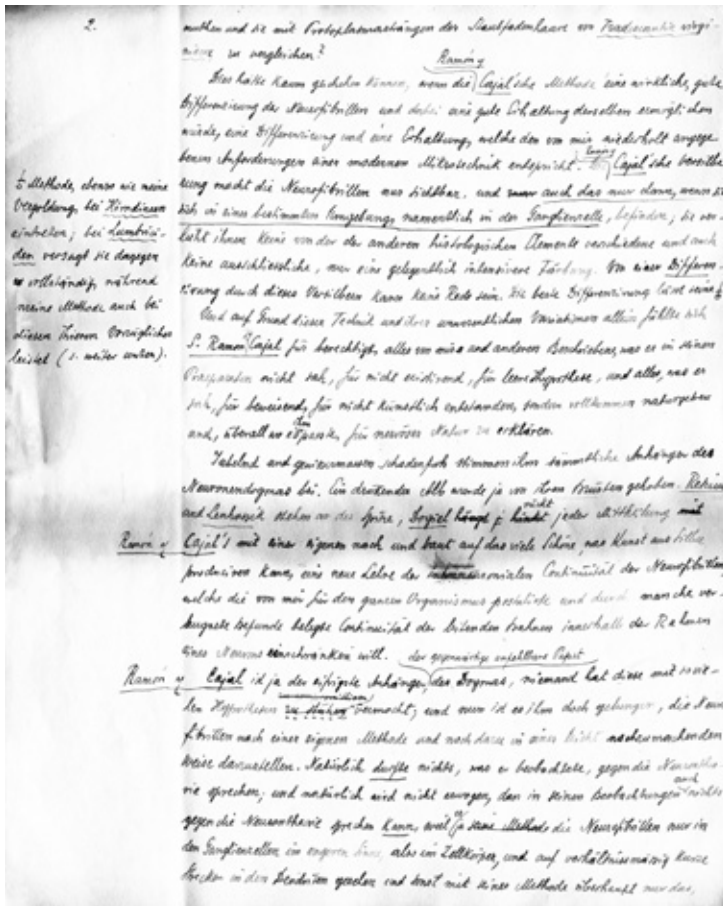 2.
muthen und sie mit Protoplasmasträngen der Staubfadenhaare von Tradescantia virgi-
nica zu vergleichen?
Ramón y
Dies hätte kaum geschehen können, wenn die Cajal'sche Methode eine wirkliche, gute
Differenzirung der Neurofibrillen und dabei eine gute Erhaltung derselben ermöglichen
würde, eine Differenzirung und eine Erhaltung, welche den von mir wiederholt angege
benen Anforderungen einer modernen Mikrotechnik entspricht. Die Cajal'sche Versilbe
rung macht die Neurofibrillen nur sichtbar, und auch das nur dann, wenn sie
sich in einer bestimmten Umgebung, namentlich in der Ganglienzelle, befinden; sie ver
leiht ihnen keine von der der anderen histologischen Elemente verschiedene und auch
keine ausschliessliche, nur eine gelegentlich intensivere Färbung. Von einer Differen
zirung durch dieses Versilbern kann keine Rede sein. Die beste Differenzirung
Methode, ebenso wie meine
Vergoldung, bei Hirudineen
eintreten; bei Lumbrici-
den versagt sie dagegen
vollständig, während
meine Methode auch bei
diesen Thieren Vorzügliches
leistet (s. weiter unten).
Und auf Grund dieser Technik und ihrer unwesentlichen Variationen allein fühlte sich
S. Ramón y Cajal für berechtigt, alles von mir und anderen Beschriebene, was er in seinen
Praeparaten nicht sah, für nicht existirend, für leere Hypothese, und alles, was er
sah, für beweisend, für nicht künstlich entstanden, sondern vollkommen naturgetreu
und, überall wo es ihm passte, für nervöser Natur zu erklären.
Jubelnd und gewissermassen schadenfroh stimmen ihm sämmtliche Anhänger des
Neuronendogmas bei. Ein drückender Alb wurde ja von ihren Brüsten gehoben. Retzius
und Lenhossék stehen an der Spitze, Dogiel rückt jeder Mittheilung
Ramón y Cajal's mit einer eigenen nach und baut auf das viele Schöne, was Kunst aus Silber
produciren kann, eine neue Lehre der Continuität der Neurofibrillen
welche die von mir für den ganzen Organismus postulirte und durch manche ver
Befunde belegte Continuität der leitenden Bahnen innerhalb der Rahmen
eines Neurons einschränken will.
der gegenwärtige unfehlbare Papst
Ramón y Cajal ist ja der eifrigste Anhänger, des Dogmas, niemand hat diese mit so vie-
len Hypothesen zu stützen vermocht; und nun ist es ihm doch gelungen, die Neuro
fibrillen nach einer eigenen Methode und noch dazu in einer Weise
darzustellen. Natürlich durfte nichts, was er beobachtete, gegen die Neurontheo
rie sprechen; und natürlich wird nicht erwogen, dass in seinen Beobachtungen auch nichts
gegen die Neurontheorie sprechen kann, weil ja seine Methode die Neurofibrillen nur in
den Ganglienzellen im engeren Sinne, also im Zellkörper, und auf verhältnissmässig kurze
Strecken in den Dendriten gesehen und sonst mit seiner Methode überhaupt nur das,